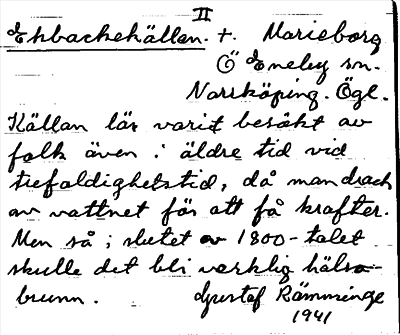 II
Ekbackekällan. t. Marieborg
Ö Eneby sn.
Norrköping. Ögl.
Källan lär varit besökt av
folk även i äldre tid vid
trefaldighetstid, då man drack
av vattnet för att få krafter.
Men så i slutet av 1800-talet
skulle det bli verklig hälso-
brunn. Gustaf Rämminge
1941